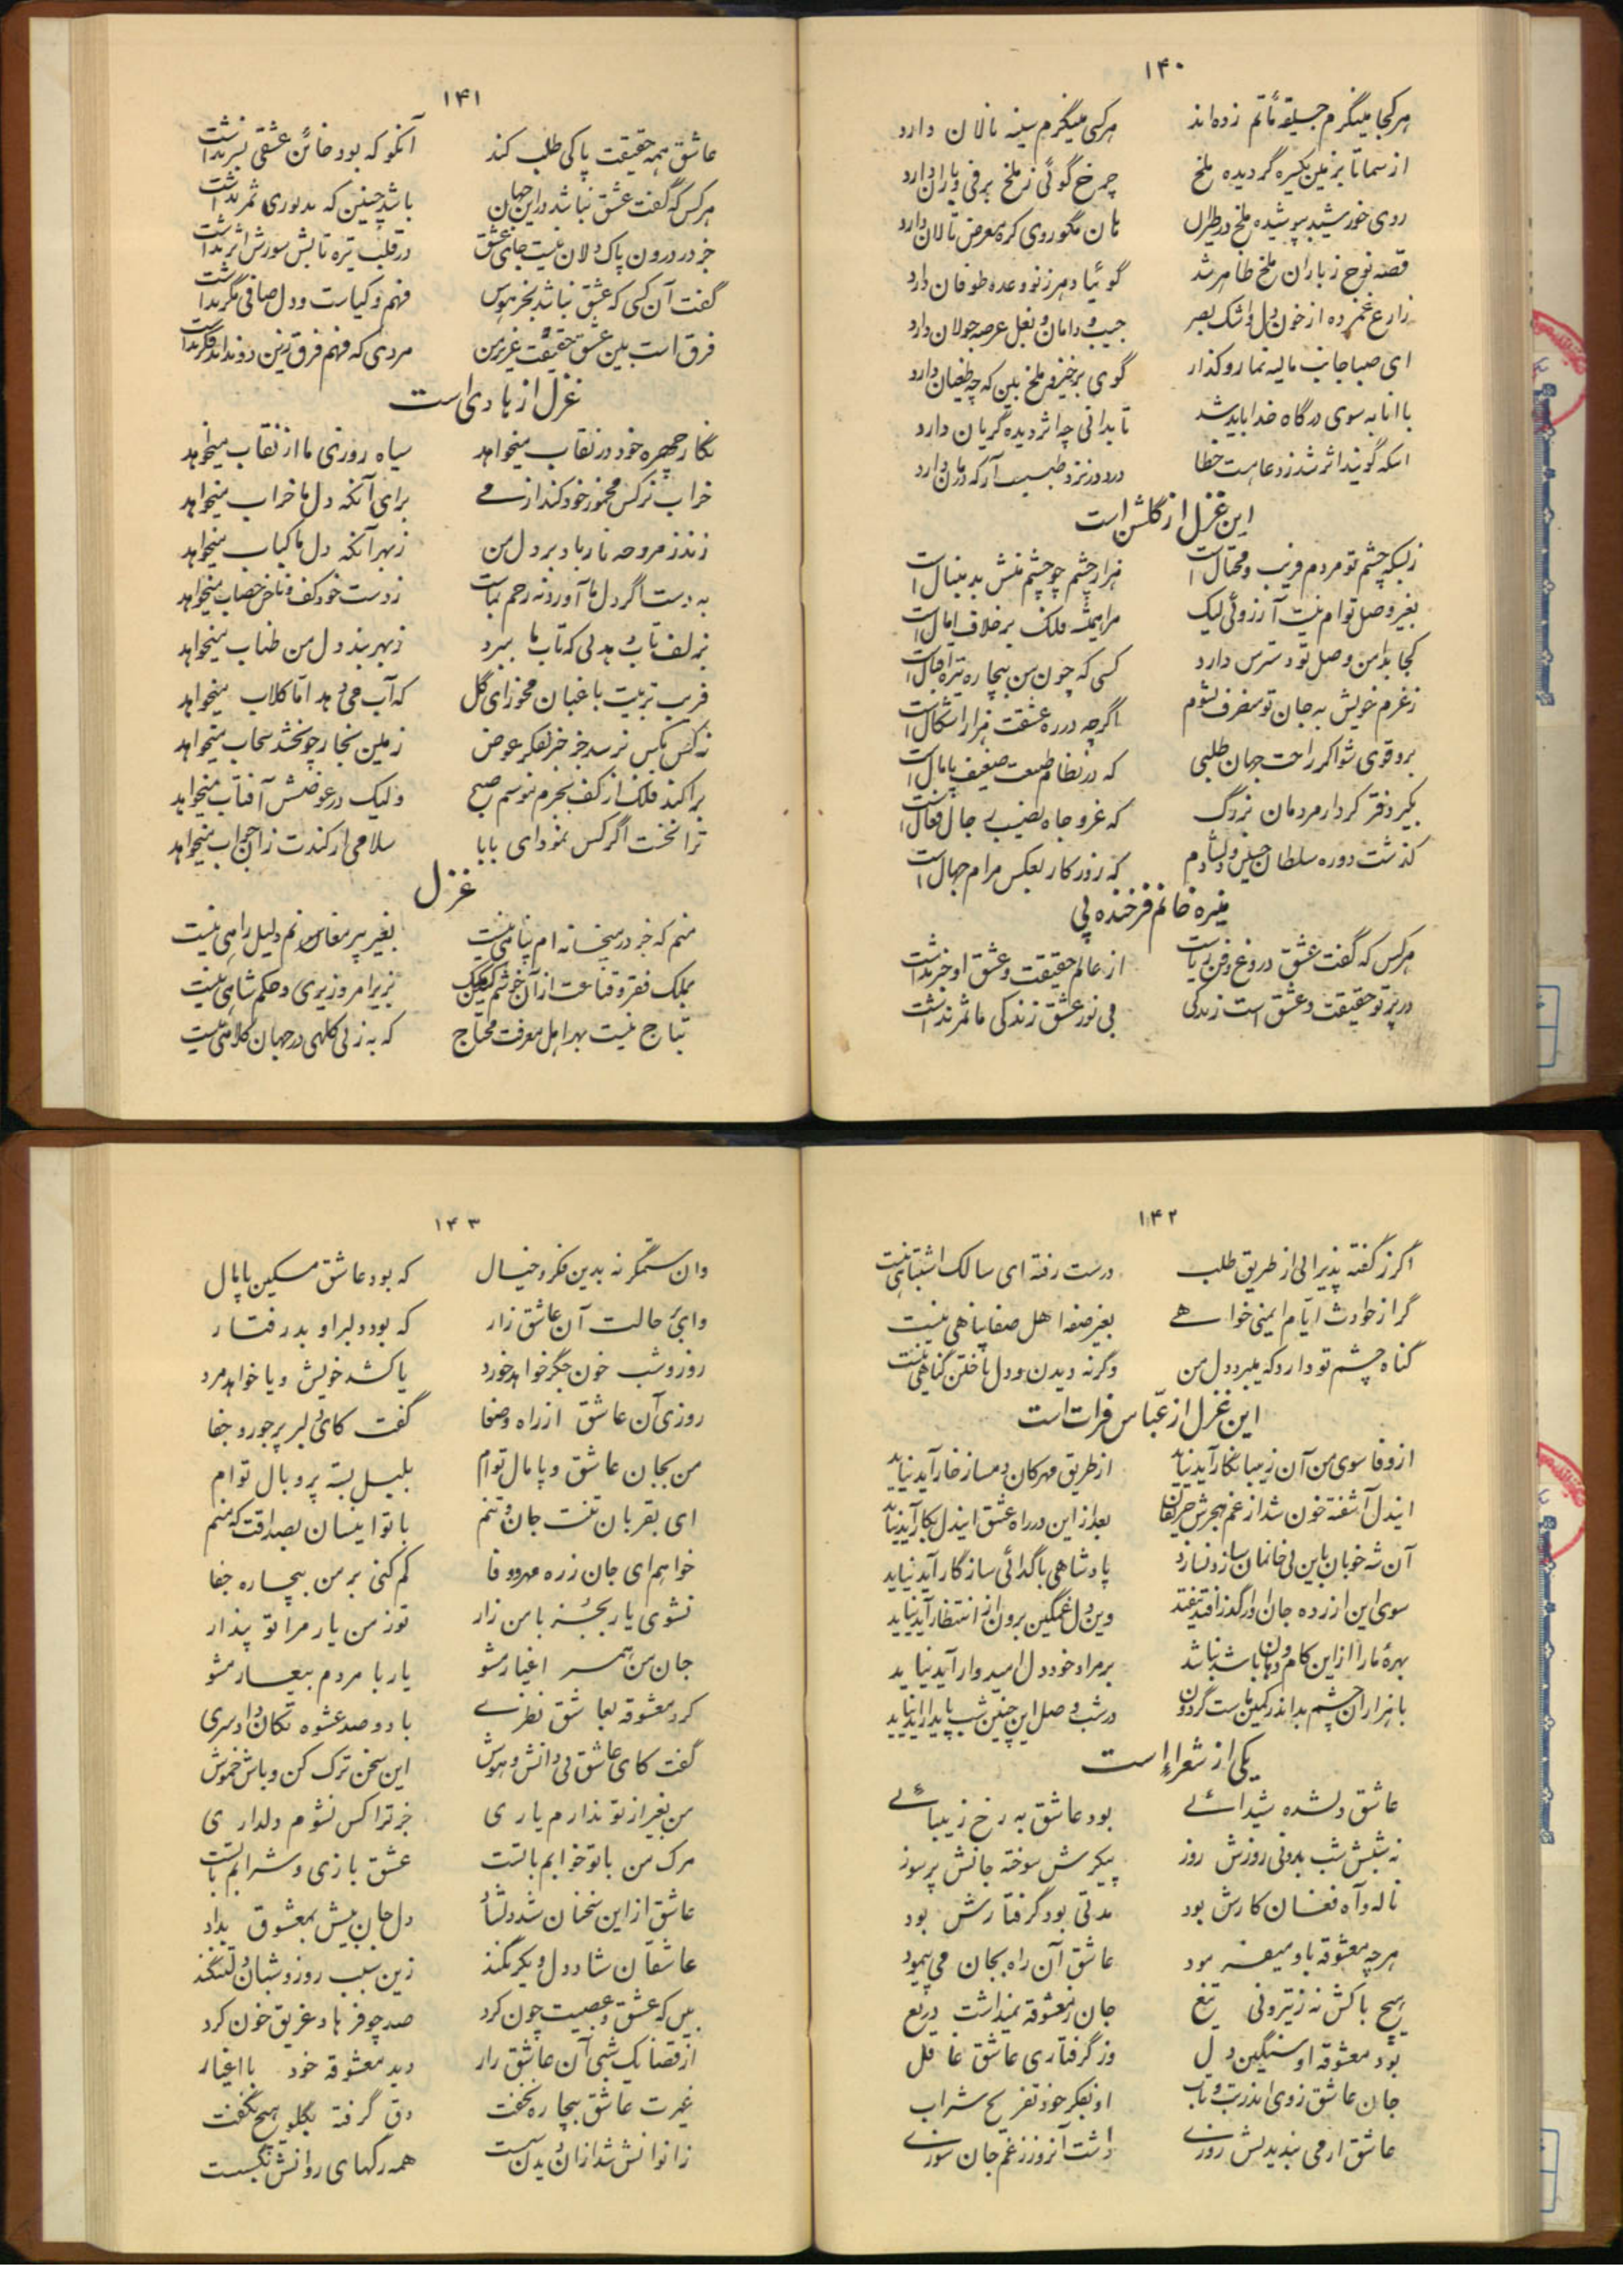 ۱۴۰
هرکجا مینگرم جسیقه ماتم زده‌اند هرکسی مینگرم سینه نالان دارد
از سما تا بزمین یکسره گردیده ملخ چرخ گوئی ز ملخ برفی و باران دارد
روی خورشید بپوشیده ملخ در طیران نان مگو روی کره معرض تالان دارد
قصه نوح ز باران ملخ ظاهر شد گوئیا دهر ز نو وعده طوفان دارد
زارع غمزده از خون دل و اشک بصر جیب و دامان و بغل عرصه جولان دارد
ای صبا جانب مالیه نما رو گذار گوی برخیز و ملخ بین که چه طغیان دارد
با انابه سوی درگاه خدا باید شد تا بدانی چه اثر دیده گریان دارد
اینکه گویند اثر شد ز دعا هست خطا درد در نزد طبیبست که درمان دارد
این غزل از گلشن است
زبسکه چشم تو مردم فریب و محتال است هزار چشم چو چشم منش بدنبال است
بغیر وصل توام نیست آرزوئی لیک مرا همیشه فلک بر خلاف امال است
کجا بدامن وصل تو دسترس دارد کسی که چون من بیچاره تیره اقبال است
زعزم خویش به جان تو منصرف نشوم اگرچه در ره عشقت هزار اشکال است
برو قوی شو اگر راحت جهان طلبی که در نظام طبیعت ضعیف پامال است
بگیر دفتر کردار مردمان بزرگ که عز و جاه نصیب رجال فعال است
گذشت دوره سلطان حسین و که روزگار بعکس مرام جهال است
منیره خانم فرخنده پی
هرکس که گفت عشق دروغ و فن ریاست از عالم حقیقت و عشق او خبر نداشت
در پرتو حقیقت و عشق است زندگی بی نور عشق زندگی ما ثمر نداشت
۱۴۱
عاشق همه حقیقت پاکی طلب کند آنکو که بود خائن عشقی بسر نداشت
هرکس که گفت عشق نباشد در این جهان باشد چنین که بد بوری ثمر نداشت
جز در درون پاک دلان نیست جای عشق در قلب تیره تابش سورش اثر نداشت
گفت آن کسی که عشق نباشد بجز هوس فهم و کیاست و دل صافی مگر نداشت
فرق است بین عشق و حقیقت عزیز من مردی که فهم فرق زین دو نداند فکر نداشت
غزل از هادی است
نگار چهره خود در نقاب میخواهد سیاه روزی ما از نقاب میخواهد
خراب نرگس مخمور خود کند از می برای آنکه دل ما خراب میخواهد
زند ز مروحه نار باد بر دل من زبهر آنکه دل ما کباب میخواهد
به دست اگر دل ما آورد نه رحم نماست ز دست خود کف و ناخن خضاب میخواهد
به زلف تاب دهد نی که تاب ما ببرد زبهر بند دل من طناب میخواهد
فریب تربیت باغبان مخور ای گل که آب می دهد اما گلاب میخواهد
نه کس بکس نرسد جز بفکر عوض زمین بخار چو بخشد سحاب میخواهد
پراکند فلک از کف نجوم موسم صبح ولیک در عوضش آفتاب میخواهد
ترا نخست اگر کس نمود ای بابا سلامی ار کندت زان جواب میخواهد
غزل
منم که جز در میخانه ام پناهی نیست بغیر پیر مغان سوی دلیل راهی نیست
بملک فقر و قناعت از آن خوشم که یک بزیر امر وزیری و حکم شاهی نیست
بتاج نیست بهر اهل معرفت محتاج که به ز بی کلهی در جهان کلاهی نیست
۱۴۲
اگر ز گفته پذیرا لی از طریق طلب درست رفته ای سالک اشتباهی نیست
گر از حوادث ایام ایمنی خواهی بغیر صفه اهل صفا پناهی نیست
گناه چشم تو دارد که میبرد دل من وگرنه دیدن و دل باختن گناهی نیست
این غزل از عباس فرات است
از وفا سوی من آن زیبا نگار آید نیاید از طریق مهرکان دمساز خار آید نیاید
ایندل آشفته خون شد از غم هجرش حریفان بعد از این در راه عشق ایندل بکار آید نیاید
آن شه خوبان باین بی خانمان سازد نسازد پادشاهی با گدائی سازگار آید نیاید
سوی این ازرده جان او را گذر افتد نیفتد وین دل غمگین برون از انتظار آید نیاید
بهره ما را از این کام و دهان باشد نباشد بر مراد خود دل امیدوار آید نیاید
با هزاران چشم بد اندر کمین ماست گردون در شب وصل این چنین شب پایدار آید نیاید
یکی از شعراء است
عاشق دلشده شیدائی بود عاشق به رخ زیبائی
نه شبش شب بد و نی روزش روز پیکرش سوخته جانش پرسوز
ناله و آه و فغان کارش بود مدتی بود گرفتارش بود
هرچه معشوقه باو میفرمود عاشق آن راه بجان می پیمود
هیچ باکش نه ز تیر و نی تیغ جان ز معشوقه نمیداشت دریغ
بود معشوقه او سنگین دل وز گرفتاری عاشق غافل
جان عاشق ز وی اندر تب و تاب او بفکر خود و تفریح شراب
عاشق ار می ندیدیش روزی داشت آنروز ز غم جان سوزی
۱۴۳
وان ستمگر نه بدین فکر و خیال که بود عاشق مسکین پامال
وای بر حالت آن عاشق زار که بود دلبر او بد رفتار
روز و شب خون جگر خواهد خورد یا کشد خویش و یا خواهد مرد
روزی آن عاشق از راه وفا گفت کای دلبر پرجور و جفا
من بجان عاشق و پامال توام بلبل بسته پر و بال توام
ای بقربان تنت جان و تنم با تو اینسان بصداقت که منم
خواهم ای جان ز ره مهر و وفا کم کنی بر من بیچاره جفا
نشوی یار بجز با من زار تو ز من یار مرا تو پندار
جان من همسر اغیار مشو یار با مردم بیعار مشو
کرد معشوقه بعاشق نظری با دو صد عشوه تکان داد سری
گفت کای عاشق بی دانش و هوش این سخن ترک کن و باش خموش
من بغیر از تو ندارم یاری جز ترا کس نشوم دلداری
مرگ من با تو خوابم با تست عشق بازی و شرابم با تست
عاشق از این سخنان شد دلشاد دل و جان بیش بمعشوق بداد
عاشقان شاد دل و یکرنگند زین سبب روز و شبان دلتنگند
بین که عشق و عصبیت چون کرد صد چو فرهاد غریق خون کرد
از قضا یک شبی آن عاشق زار دید معشوقه خود با اغیار
غیرت عاشق بیچاره بخفت دق گرفته بگلو هیچ نگفت
زانوانش شد از آن دیدن سست همه رگهای روانش بگسست